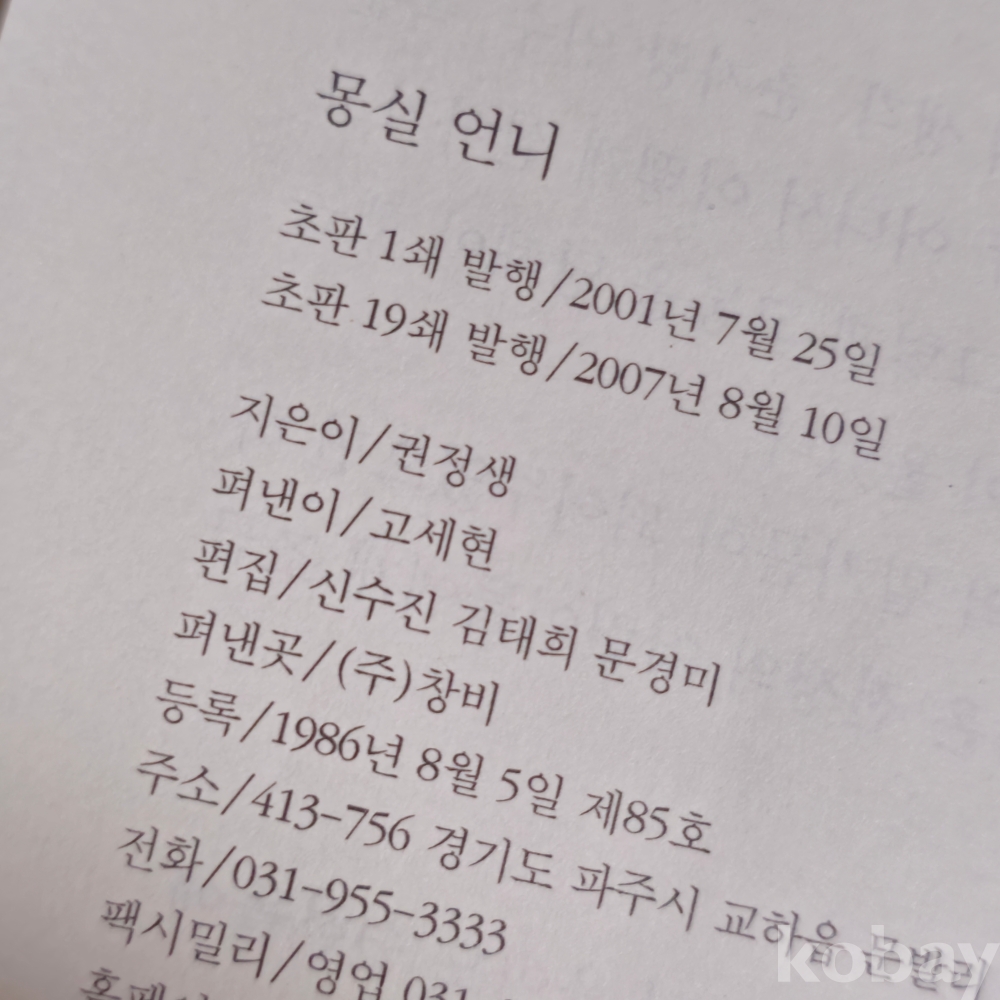 몽실 언니
초판 1쇄 발행/2001년 7월 25일
초판 19쇄 발행/2007년 8월 10일
지은이/권정생
펴낸이/고세현
편집/신수진 김태희 문경미
펴낸곳/(주)창비
등록/1986년 8월 5일 제85호
주소/413-756 경기도 파주시 교하읍 문발리
전화/031-955-3333
팩시밀리/영업 031
kobay